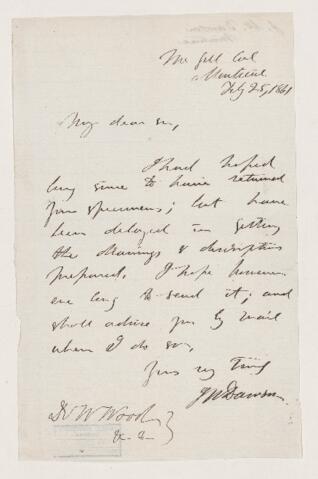 McGill Col
Montreal
Feby 25, 1861
My dear sir,
I had hoped
long since to have returned
your specimens; but have
been delayed in getting
the drawings & descriptions
prepared. I hope however
ere long to send it; and
shall advise you by mail
when I do so,
Yours very truly
JWDawson
Dr W Wood
&. &.